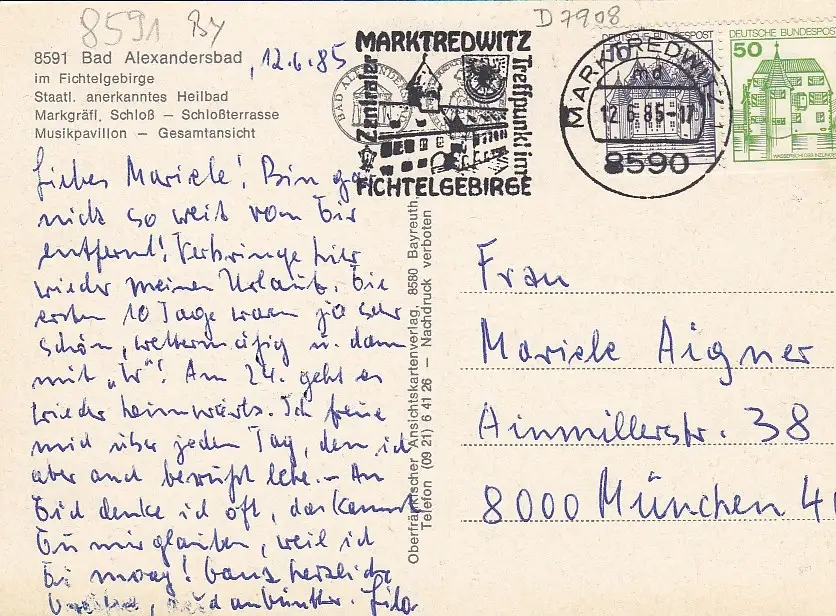 8591 By
D7908
8591 Bad Alexandersbad
im Fichtelgebirge
Staatl. anerkanntes Heilbad
Markgräfl. Schloß – Schloßterrasse
Musikpavillon – Gesamtansicht
, 12.6.85
MARKTREDWITZ
Zentraler
Treffpunkt im
FICHTELGEBIRGE
BAD ALEXANDERSBAD
MARKTREDWITZ 1
12.6.85-17
8590
DEUTSCHE BUNDESPOST
DEUTSCHE BUNDESPOST
50
Liebes Mariele! Bin gar
nicht so weit von Dir
entfernt! Verbringe hier
wieder meinen Urlaub. Die
ersten 10 Tage waren ja sehr
schön, wettermäßig u. dann
mit „W“! Am 24. geht es
wieder heimwärts. Ich freue
mich über jeden Tag, den ich
aber auch bewußt lebe. – An
Dich denke ich oft, das kannst
Du mir glauben, weil ich
Di moag! Ganz herzliche
Oberfränkischer Ansichtskartenverlag, 8580 Bayreuth,
Telefon (09 21) 6 41 26 – Nachdruck verboten
Frau
Mariele Aigner
Ainmillerstr. 38
8000 München 40